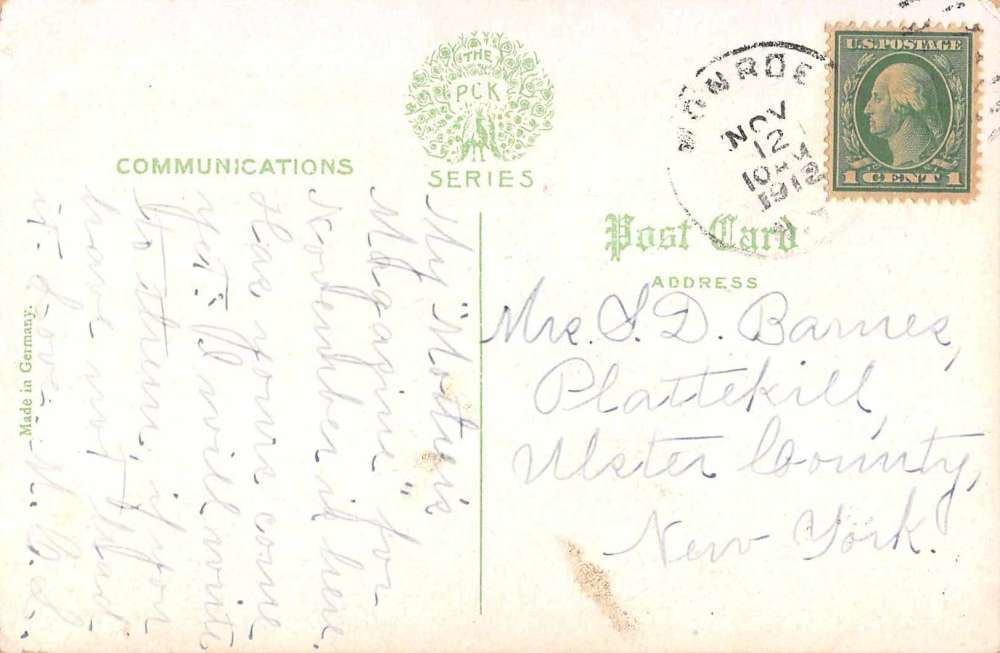 THE
PCK
SERIES
COMMUNICATIONS
My "Mother's
Magazine" for
November is here.
Has yours come
yet? I will write
to them, if you
have not had
it. Love. M. C. S.
Made in Germany.
MONROE
NOV
12
10 AM
1912
U.S. POSTAGE
1 CENT 1
Post Card
ADDRESS
Mrs. S. D. Barnes,
Plattekill,
Ulster County,
New York.